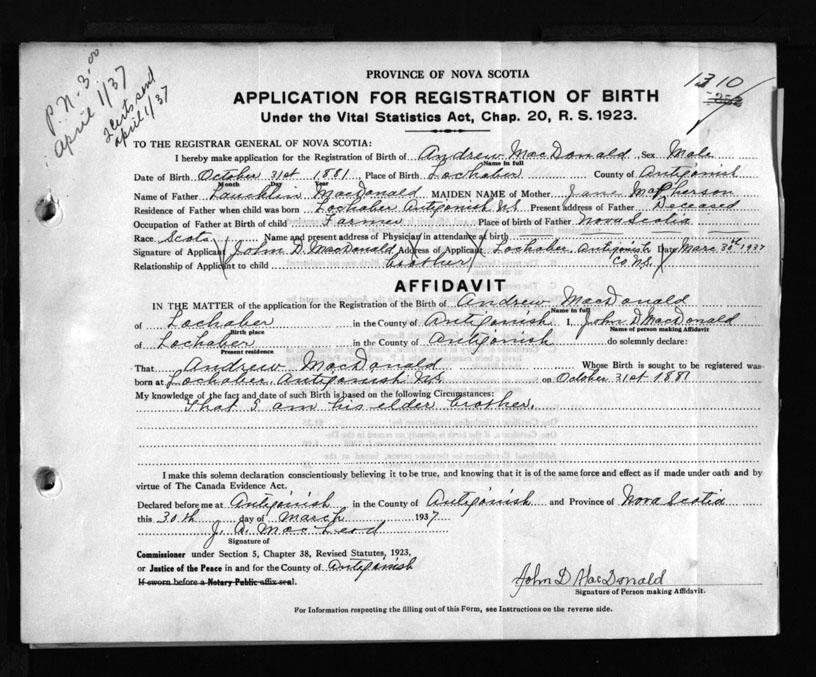 P.N. 3.00
April 1/37
2 certs sent
april 1/37
PROVINCE OF NOVA SCOTIA
1310
APPLICATION FOR REGISTRATION OF BIRTH
Under the Vital Statistics Act, Chap. 20, R. S. 1923.
TO THE REGISTRAR GENERAL OF NOVA SCOTIA:
I hereby make application for the Registration of Birth of Andrew MacDonald Sex Male
Name in full
Date of Birth October 31st 1881 Place of Birth Lochaber County of Antigonish
Month Day Year
Name of Father Lauchlin MacDonald MAIDEN NAME of Mother Jane MacPherson
Residence of Father when child was born Lochaber Antigonish N.S. Present address of Father Deceased
Occupation of Father at Birth of child Farmer Place of birth of Father Nova Scotia
Race Scots Name and present address of Physician in attendance at birth
Signature of Applicant John D. MacDonald Address of Applicant Lochaber, Antigonish Co N.S. Date Marc 30th 1937
Relationship of Applicant to child brother
AFFIDAVIT
IN THE MATTER of the application for the Registration of the Birth of Andrew MacDonald
Name in full
of Lochaber in the County of Antigonish I, John D MacDonald
Birth place Name of person making Affidavit
of Lochaber in the County of Antigonish do solemnly declare:
Present residence
That Andrew MacDonald Whose Birth is sought to be registered was
born at Lochaber, Antigonish N.S. on October 31st 1881
My knowledge of the fact and date of such Birth is based on the following Circumstances:
That I am his elder brother.
I make this solemn declaration conscientiously believing it to be true, and knowing that it is of the same force and effect as if made under oath and by
virtue of The Canada Evidence Act.
Declared before me at Antigonish in the County of Antigonish and Province of Nova Scotia
this 30th day of March 1937
J. A. MacLeod
Signature of
Commissioner under Section 5, Chapter 38, Revised Statutes, 1923,
or Justice of the Peace in and for the County of Antigonish
If sworn before a Notary Public affix seal.
John D MacDonald
Signature of Person making Affidavit.
For Information respecting the filling out of this Form, see Instructions on the reverse side.